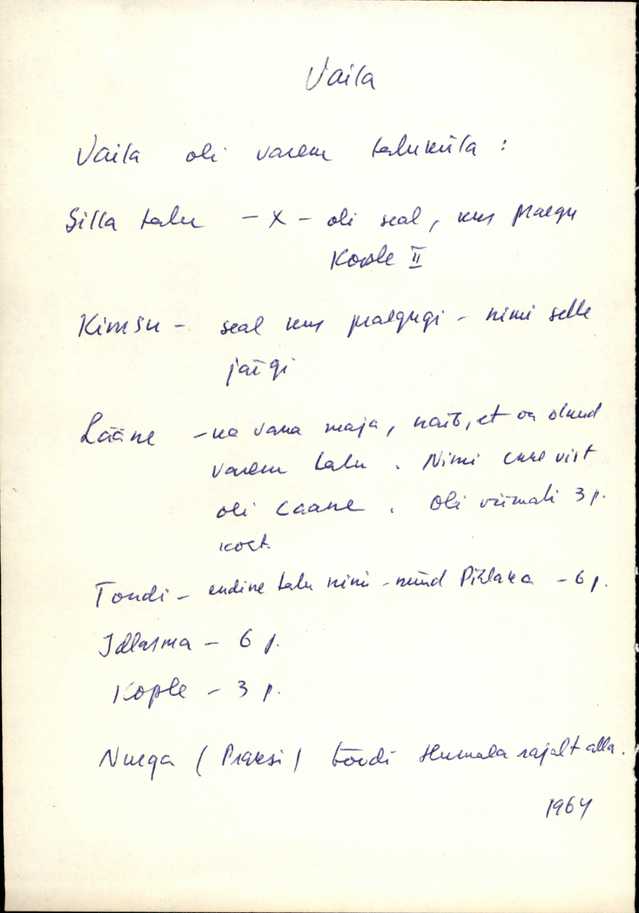 Vaila
Vaila oli varem taluküla :
Silla talu – X – oli seal, kus praegu
Kople II
Kimsu – seal kus praegugi – nimi selle
järgi
Lääne – ka vana maja, näib, et on olnud
varem talu. Nimi enne vist
oli Lääne. Oli viimati 3 p.
koht.
Tondi – endine talu nimi – nüüd Pihlaka – 6 p.
Idlasma – 6 p.
Kople – 3 p.
Nurga (Praksi) toodi Humala rajalt alla.
1964